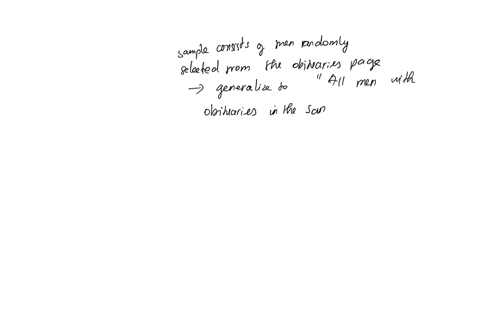 sample consists of men randomly
selected from the obituaries page
→ generalize to "All men with
obituaries in the San